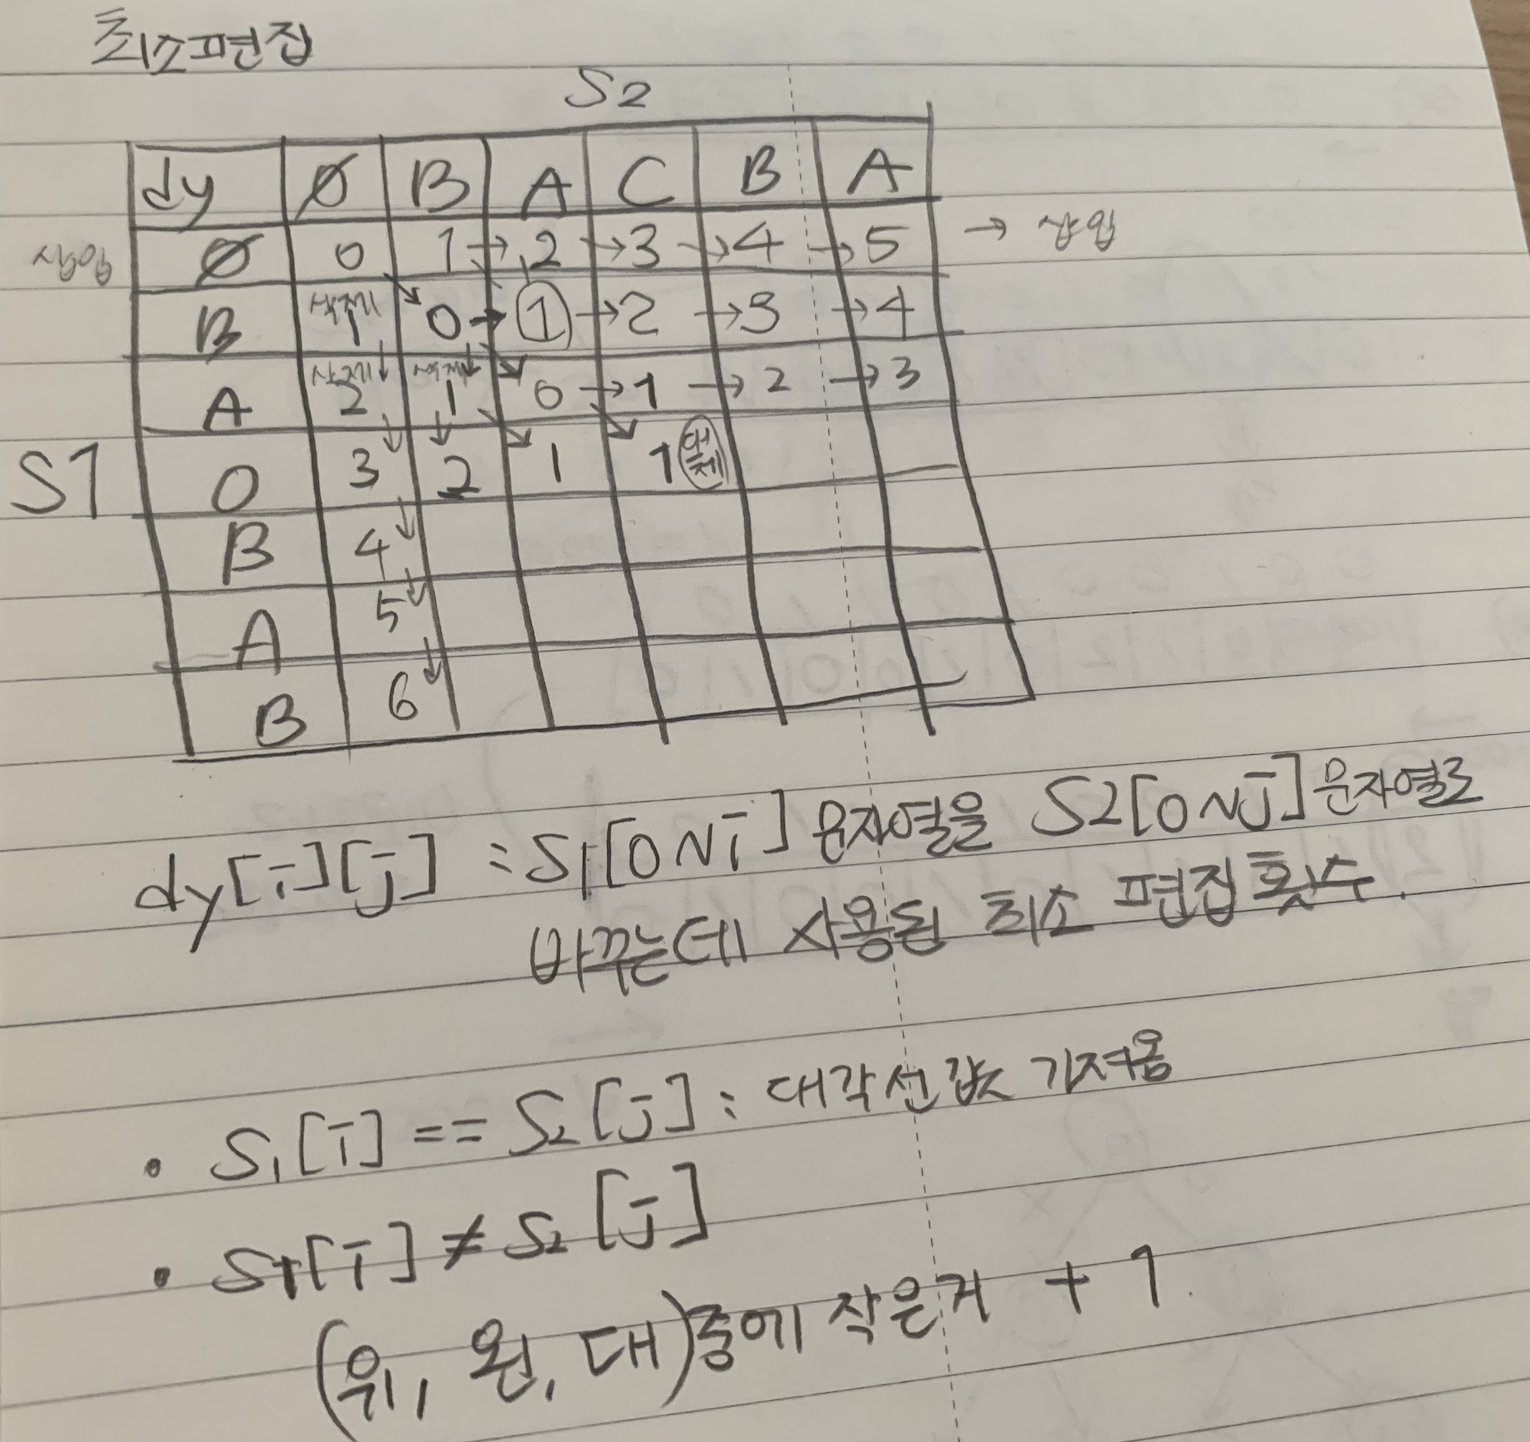 최소편집
S2
dy ∅ B A C B A
삽입 ∅ 0 1 → 2 → 3 → 4 → 5 → 삽입
B 삭제 1 0 → 1 → 2 → 3 → 4
A 삭제 2 삭제 1 0 → 1 → 2 → 3
S1 O 3 2 1 1 대체
B 4
A 5
B 6
dy[i][j] : S1[0~i] 문자열을 S2[0~j] 문자열로
바꾸는데 사용된 최소 편집 횟수.
• S1[i] == S2[j] : 대각선값 가져옴
• S1[i] ≠ S2[j]
(위, 왼, 대)중에 작은거 + 1